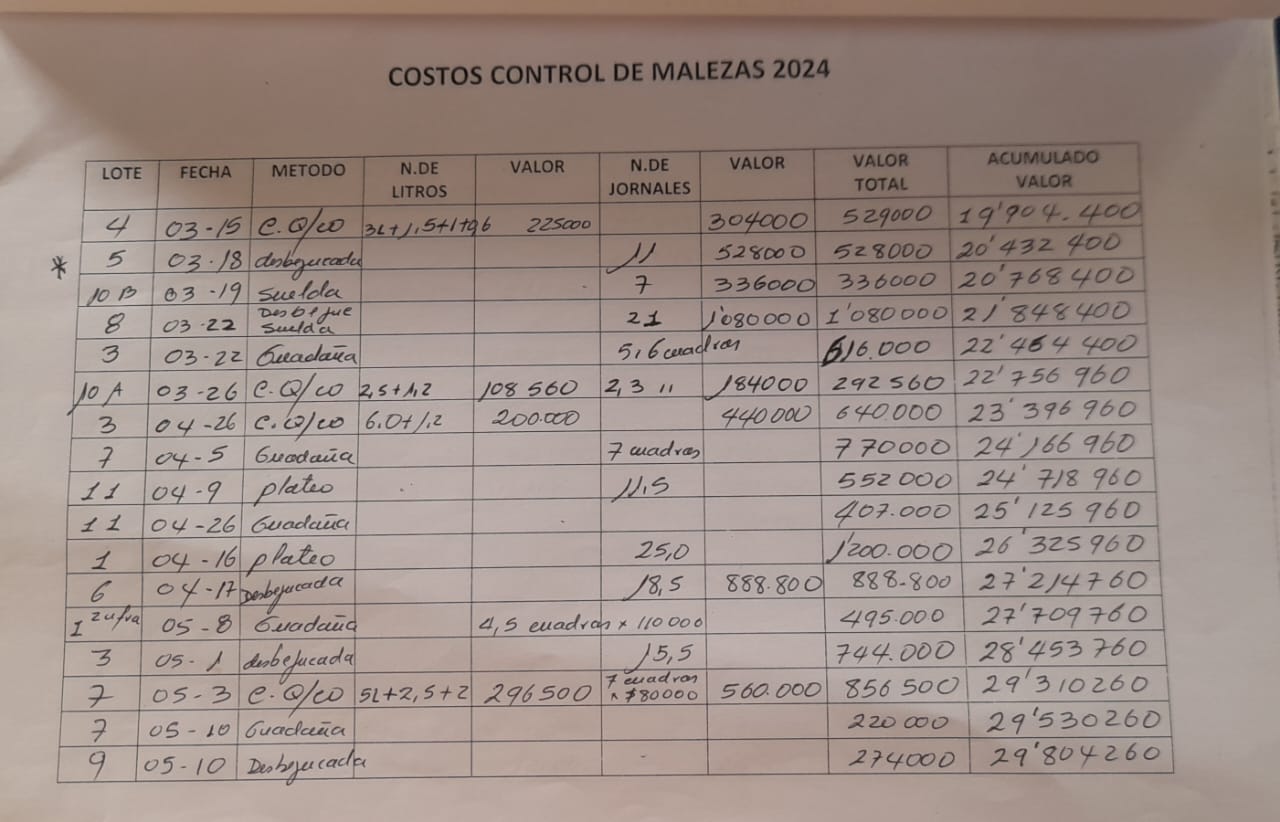 COSTOS CONTROL DE MALEZAS 2024
LOTE FECHA METODO N.DE LITROS VALOR N.DE JORNALES VALOR VALOR TOTAL ACUMULADO VALOR
4 03-15 C.Q/co 3L+1,5+1+96 225000 304000 529000 19'904.400
* 5 03-18 desbejucada 11 528000 528000 20'432 400
10 B 03-19 Suelda 7 336000 336000 20'768400
8 03-22 Desbejue Suelda 21 1'080000 1'080000 21'848400
3 03-22 Guadaña 5,6 cuadras 616.000 22'464 400
10 A 03-26 C.Q/co 2,5+1,2 108 560 2,3 " 184000 292560 22'756 960
3 04-26 C.Q/co 6.0+1.2 200.000 440000 640.000 23'396 960
7 04-5 Guadaña 7 cuadras 770000 24'166 960
11 04-9 plateo 11,5 552 000 24'718 960
11 04-26 Guadaña 407.000 25'125 960
1 04-16 plateo 25,0 1'200.000 26'325960
6 04-17 Desbejucada 18,5 888.800 888.800 27'214760
1 zufra 05-8 Guadaña 4,5 cuadras x 110000 495.000 27'709760
3 05-1 desbejucada 15,5 744.000 28'453760
7 05-3 C.Q/co 5L+2,5+2 296500 7 cuadras x $80000 560.000 856500 29'310260
7 05-10 Guadaña 220 000 29'530260
9 05-10 Desbejucada 274000 29'804260